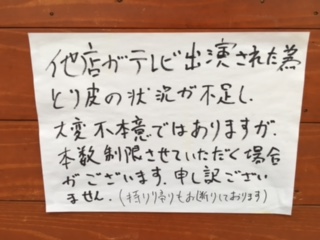 他店がテレビ出演された為
とり皮の状況が不足し、
大変不本意ではありますが、
本数制限させていただく場合
がございます。申し訳ござい
ません。(持り帰りもお断りしております)